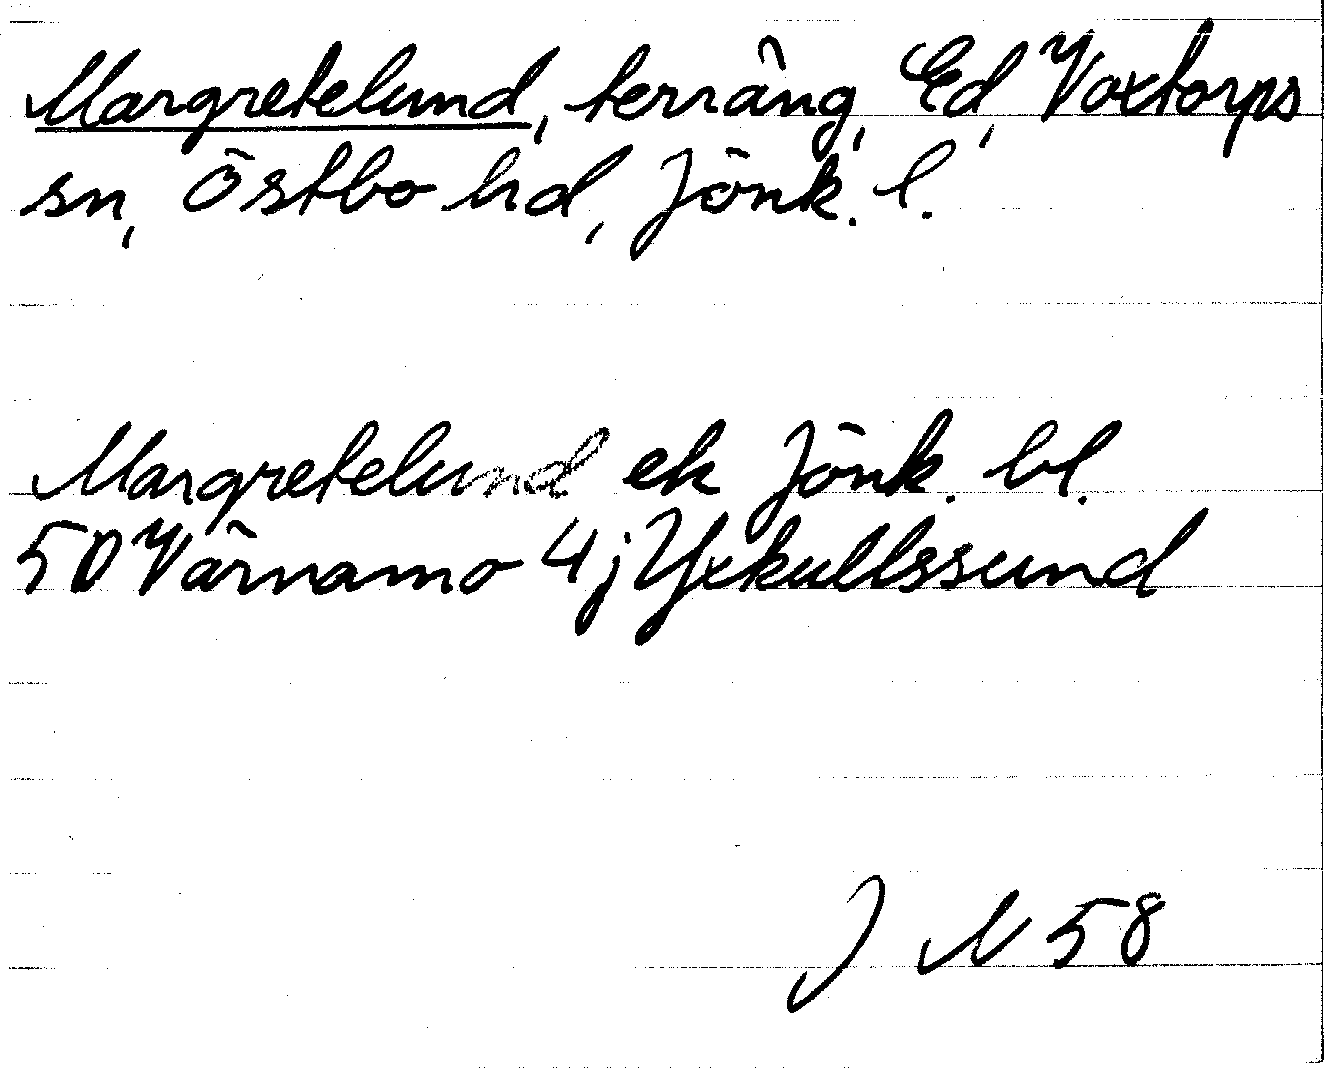 Margretelund, terräng, Ed, Voxtorps
sn, Östbo hd, Jönk. l.
Margretelund ek Jönk. bl.
50 Värnamo 4j Yxkullssund
J N 58